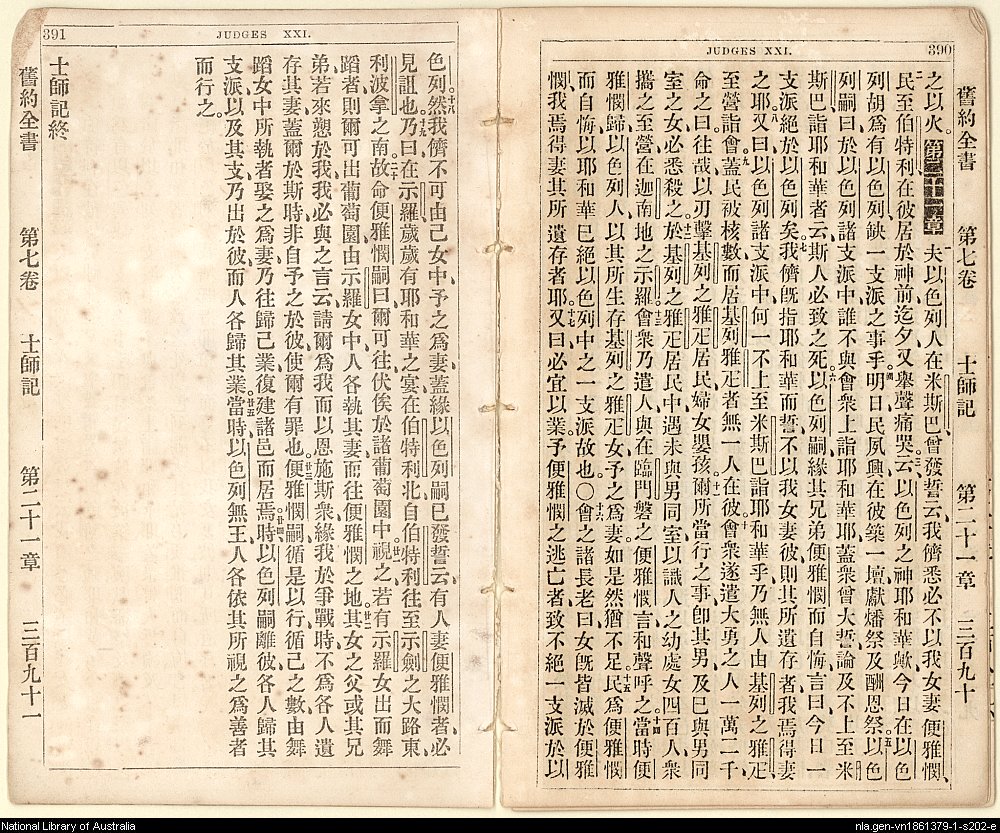 390
JUDGES XXI.
舊約全書 第七卷 士師記 第二十一章 三百九十
之以火。第二十一章 一夫以色列人在米斯巴曾發誓云、我儕悉必不以我女妻便雅憫、
二民至伯特利在彼居於神前迄夕、又舉聲痛哭云、三以色列之神耶和華歟、今日在以色
列胡爲有以色列缺一支派之事乎。四明日民夙興在彼築一壇獻燔祭及酬恩祭。五以色
列嗣曰、於以色列諸支派中誰不與會衆上詣耶和華耶、蓋衆曾大誓論及不上至米
斯巴詣耶和華者云、斯人必致之死。六以色列嗣緣其兄弟便雅憫而自悔言曰、今日一
支派絕於以色列矣。七我儕旣指耶和華而誓不以我女妻彼、則其所遺存者我焉得妻
之耶。八又曰、以色列諸支派中何一不上至米斯巴詣耶和華乎、乃無人由基列之雅疋
至營詣會。九蓋民被核數而居基列雅疋者無一人在彼。十會衆遂遣大勇之人一萬二千
命之曰、往哉、以刃擊基列之雅疋居民婦女嬰孩。十一爾所當行之事、卽其男及巳與男同
室之女必悉殺之。十二於基列之雅疋居民中遇未與男同室以識人之幼處女四百人、衆
攜之至營、在迦南地之示羅。十三會衆乃遣人與在臨門磐之便雅憫言和聲呼之。十四當時便
雅憫歸、以色列人以其所生存基列之雅疋女予之爲妻、如是然猶不足。十五民爲便雅憫
而自悔、以耶和華巳絕以色列中之一支派故也。○十六會之諸長老曰、女旣皆滅於便雅
憫、我焉得妻其所遺存者耶。十七又曰、必宜以業予便雅憫之逃亡者、致不絕一支派於以
391
JUDGES XXI.
色列。十八然我儕不可由己女中予之爲妻、蓋緣以色列嗣已發誓云、有人妻便雅憫者、必
見詛也。十九乃曰、在示羅歲歲有耶和華之宴、在伯特利北、自伯特利往至示劍之大路東、
利波拿之南。二十故命便雅憫嗣曰、爾可往伏俟於諸葡萄園中。廿一視之、若有示羅女出而舞
蹈者、則爾可出葡萄園、由示羅女中人各執其妻而往便雅憫之地。廿二其女之父或其兄
弟若來愬於我、我必與之言云、請爾爲我而以恩施斯衆、緣我於爭戰時不爲各人遺
存其妻、蓋爾於斯時非自予之於彼、使爾有罪也。廿三便雅憫嗣循是以行、循己之數、由舞
蹈女中所執者娶之爲妻、乃往歸己業、復建諸邑而居焉。廿四時以色列嗣離彼各人歸其
支派、以及其支、乃出於彼而人各歸其業。廿五當時以色列無王、人各依其所視之爲善者
而行之。
士師記終
舊約全書 第七卷 士師記 第二十一章 三百九十一
National Library of Australia
nla.gen-vn1861379-1-s202-e